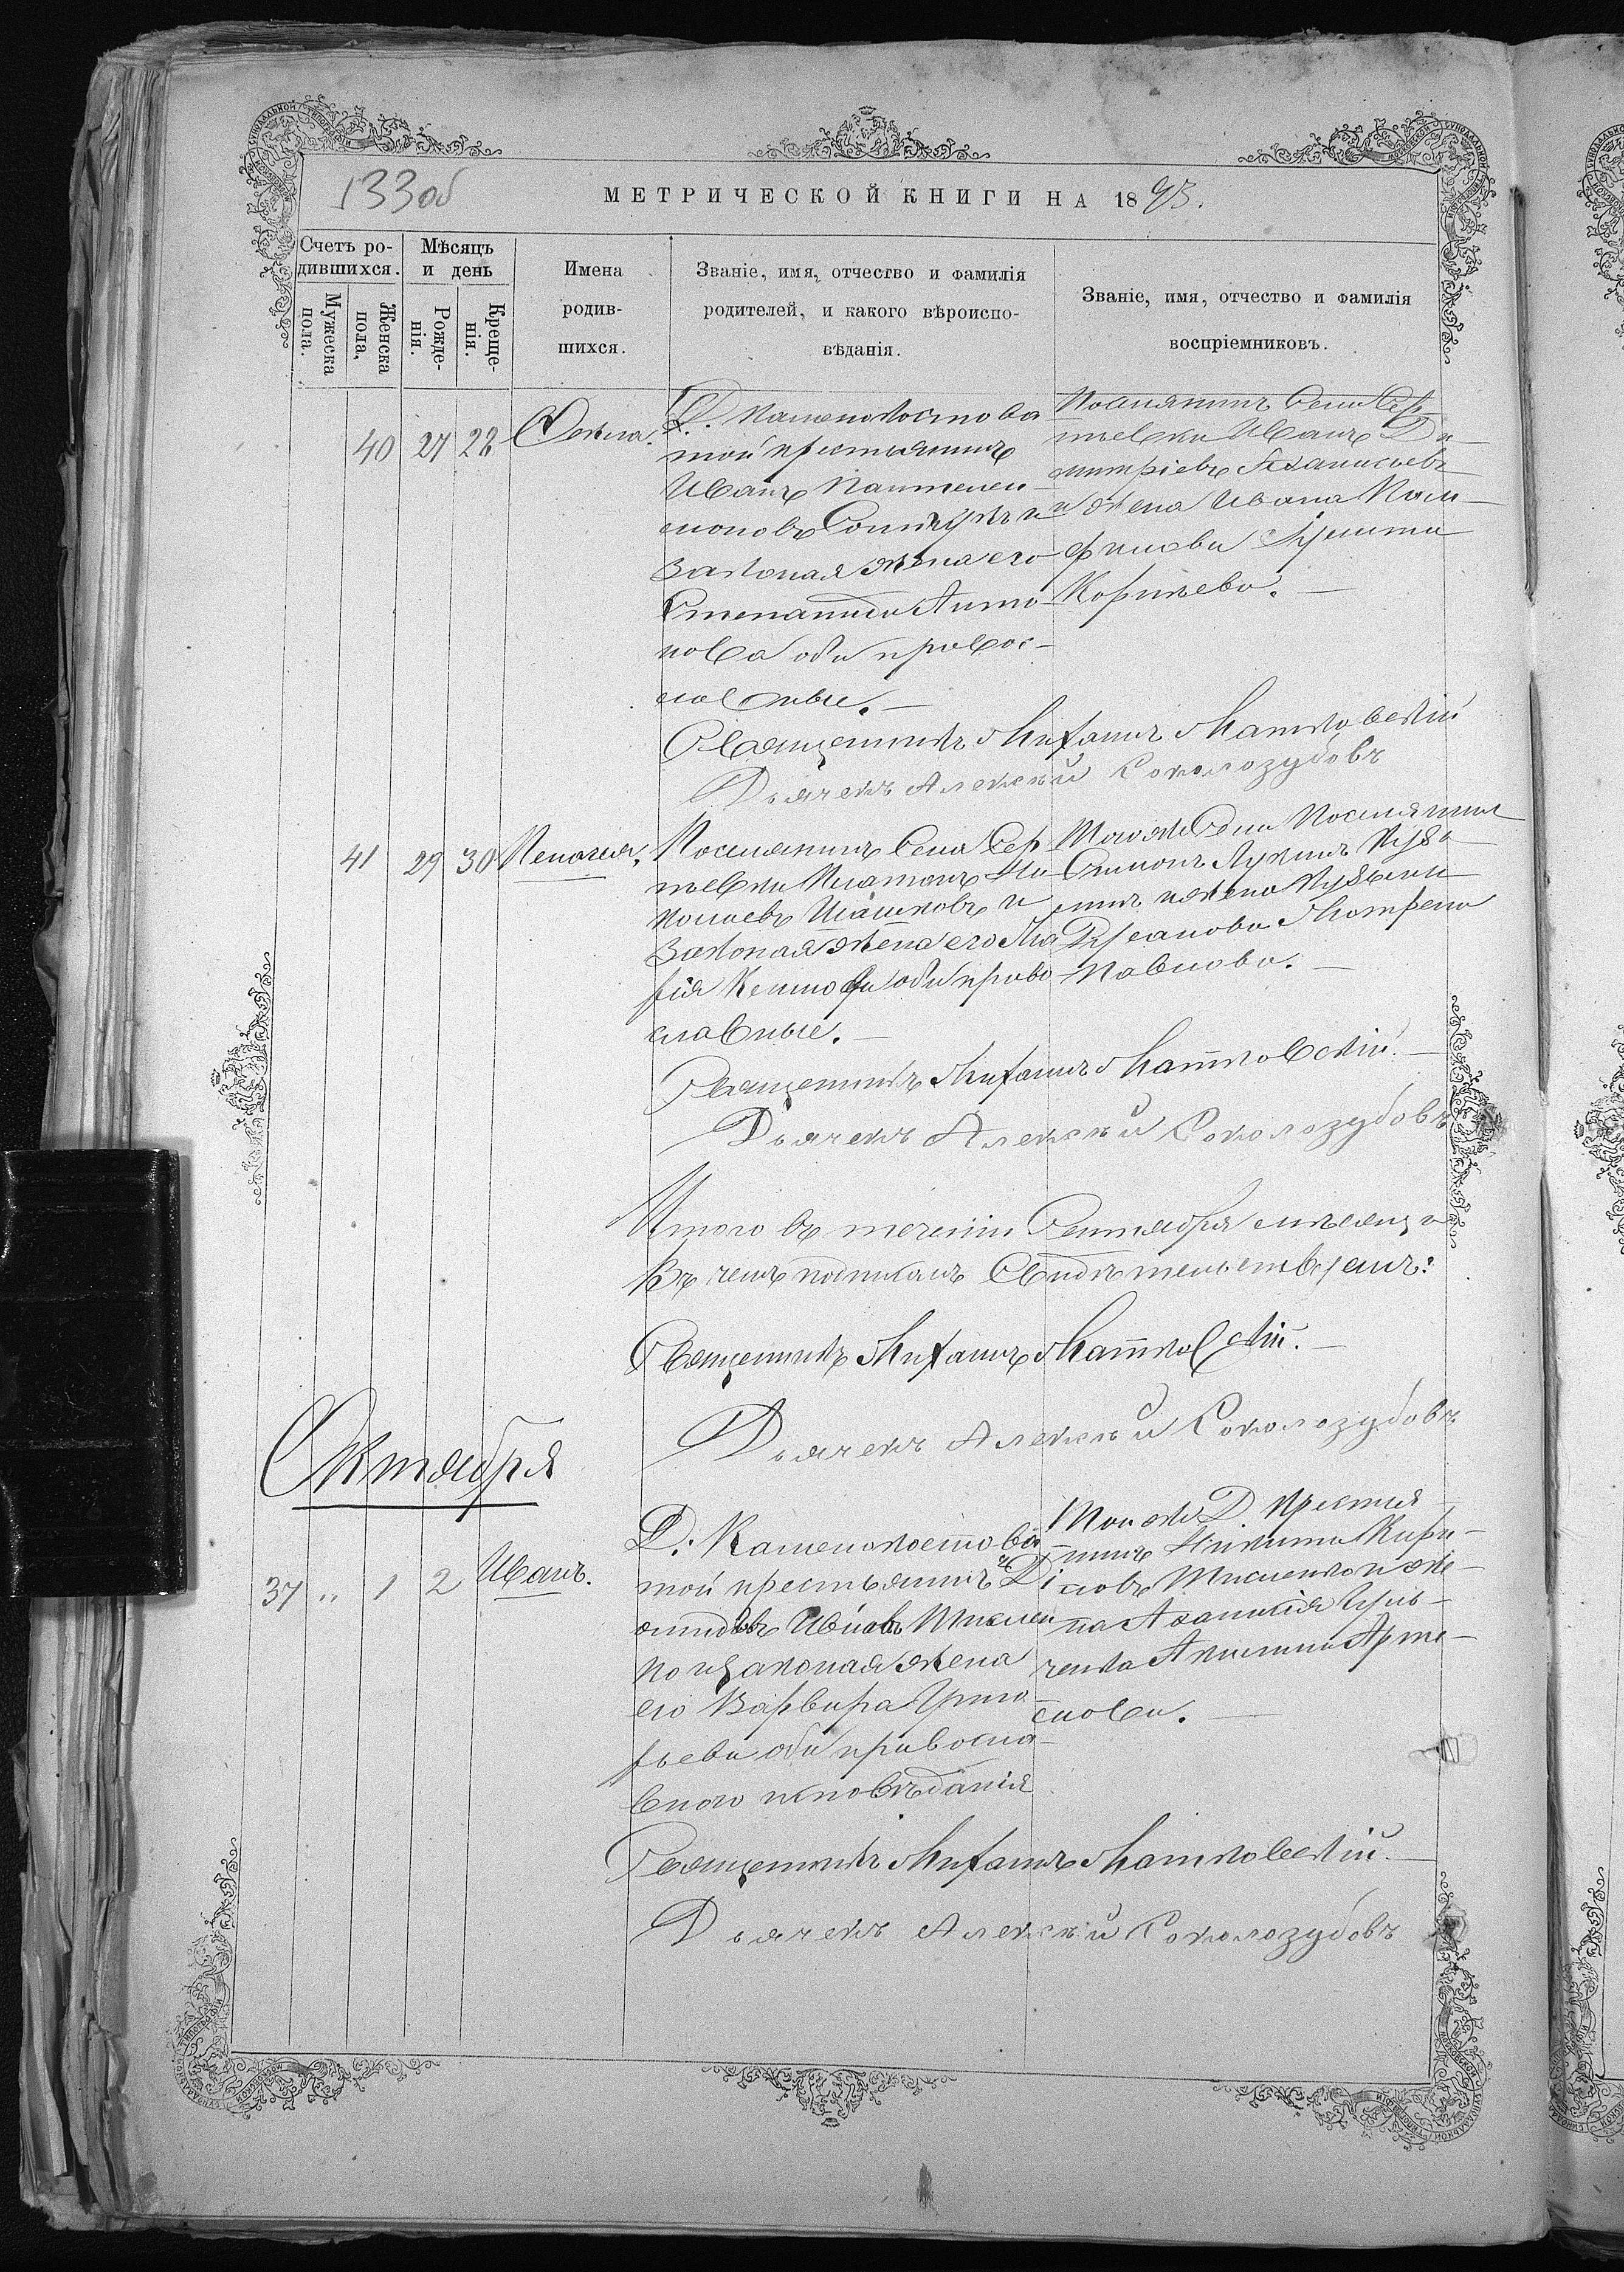 133об
МЕТРИЧЕСКОЙ КНИГИ НА 1893.
Счетъ ро-
дившихся.
Мужеска
пола.
Женска
пола,
Мѣсяцъ
и день
Рожде-
нія.
Креще-
нія.
Имена
родив-
шихся.
Званіе, имя, отчество и фамилія
родителей, и какого вѣроиспо-
вѣданія.
Званіе, имя, отчество и фамилія
воспріемниковъ.
40 27 28 Ѳекла.
Д. Каменоватой
той крестьянинъ
Иванъ Пантелей-
моновъ и
Законая жена его
Степанида Анто-
нова оба правос-
лавные.
Поселянинъ Села Сер
гѣевки Иванъ Ди-
митріевъ Аѳанасьевъ
и жена Ивана Пам-
филова
Корнѣева.
Священникъ Михаилъ Матковскій
Дьячекъ Алексѣй Соколозубовъ
41 29 30 Пелагія.
Поселянинъ Села Сер
гѣевки Платонъ Ни
колаевъ Шашковъ и
Законая жена его Ма
рія оба право
славные.
Тогоже Села Поселянинъ
Симонъ Лукинъ Кузь-
минъ и жена Кузьмы
Мотрена
Павлова.
Священникъ Михаилъ Матковскій.
Дьячекъ Алексѣй Соколозубовъ
Итого въ теченіи Сентября мѣсяца
Въ чемъ подпискою Свидѣтельствуемъ:
Священникъ Михаилъ Матковскій.
Дьячекъ Алексѣй Соколозубовъ
Октября
37 " 1 2 Иванъ.
Д. Каменокостова
той крестьянинъ Ді
омидовъ Ивановъ Тислен
ко и Законая жена
его Варвара Григо-
рьева оба правосла-
вного исповѣданія
Той же Д. крестья-
нинъ Никита Кири-
ловъ Тисленко и же-
на Аѳанасія Гри-
ченка Акилина Арте-
мова.
Священникъ Михаилъ Матковскій.
Дьячекъ Алексѣй Соколозубовъ